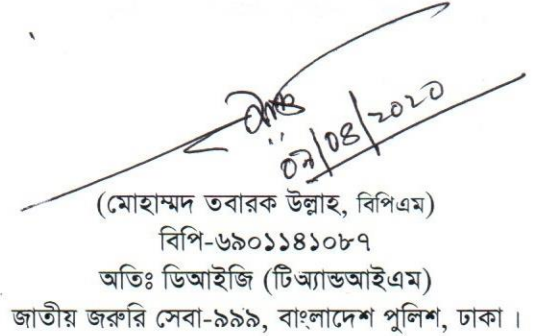 ০৭/০৪/২০২০
(মোহাম্মদ তবারক উল্লাহ, বিপিএম)
বিপি-৬৯০১১৪১০৮৭
অতিঃ ডিআইজি (টিঅ্যান্ডআইএম)
জাতীয় জরুরি সেবা-৯৯৯, বাংলাদেশ পুলিশ, ঢাকা ।